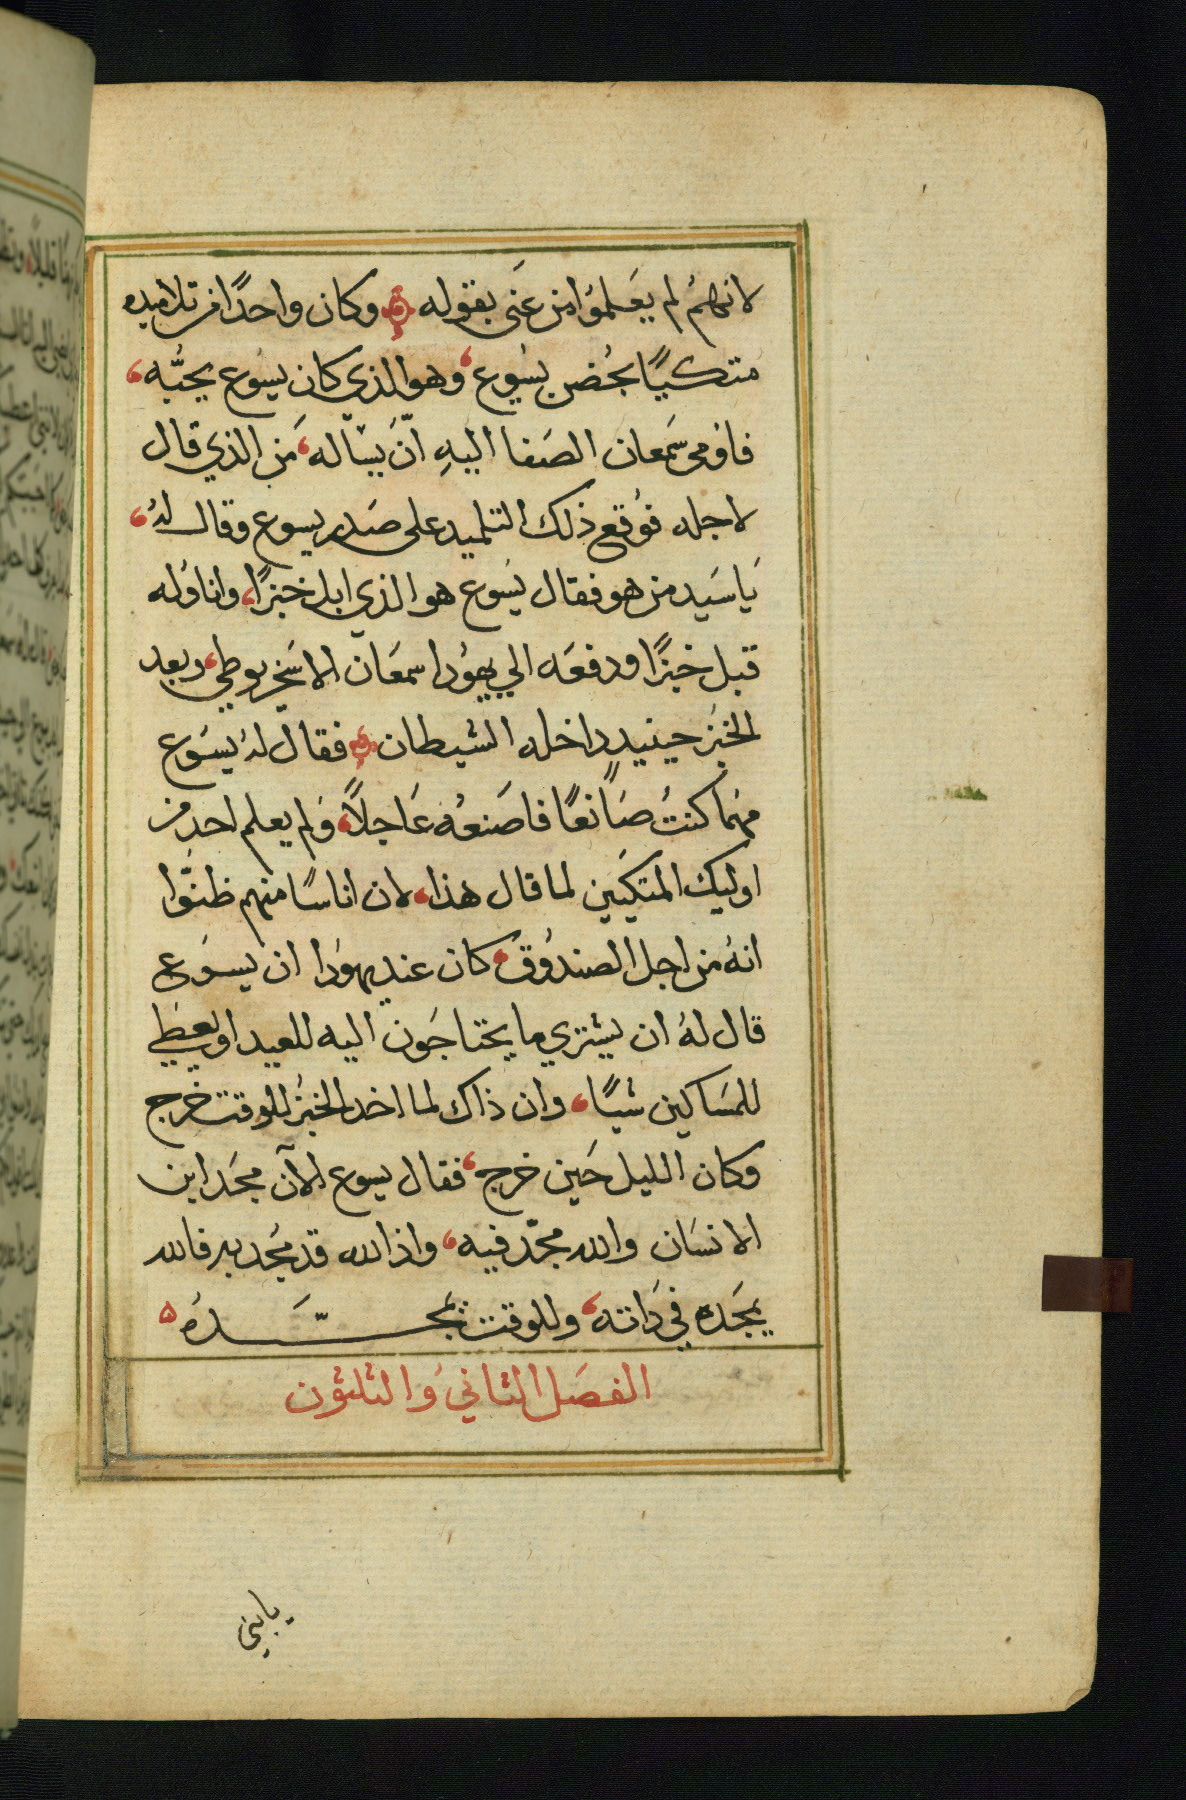 لانهمُ لم يعَلموُا من عَنَى بقوله وكان واحدًا من تلاميده
متكيًا بحُضن يسُوع وهو الذي كان يسُوع يحبُّه
فاوُمى سَمعان الصَفا اليهِ انّ يسَاله مَن الذي قال
لاجله فوُقع ذلك التلميد على صَدر يسوع وقال لهُ
يَا سَيد من هو فقال يسَوع هو الذي ابل خبزًا واناوُله
فبل خبزًا ودفعَه الي يهوُدا سمعَان الاسَخريوطي وبعد
الخبُز حينيدٍ داخله الشيطان فقال لهُ يسَوع
مهَما كنتُ صَانعًا فاصَنعهُ عَاجلاً وَلم يعلم احد من
اوليك المتكيَين لما قال هذا لان اناسًا منهم ظنوَّا
انهُ من اجل الصندوُق كان عند يهوُدا ان يسوَع
قال لهُ ان يشتري ما يحتاجَون اليه للعيد او يعطَي
للمسَاكين شيًا وان ذاك لما اخد الخبُز للوقت خرج
وكان الليل حَين خرج فقال يسوع الآن مجَد ابن
الانسَان والله مجّد فيه واذ الله قد مجَد به فالله
يمجَده في دَاته وللوقت يمجـــّـــَـدهُ
الفصَل الثاني وُالثلثون
يا بني